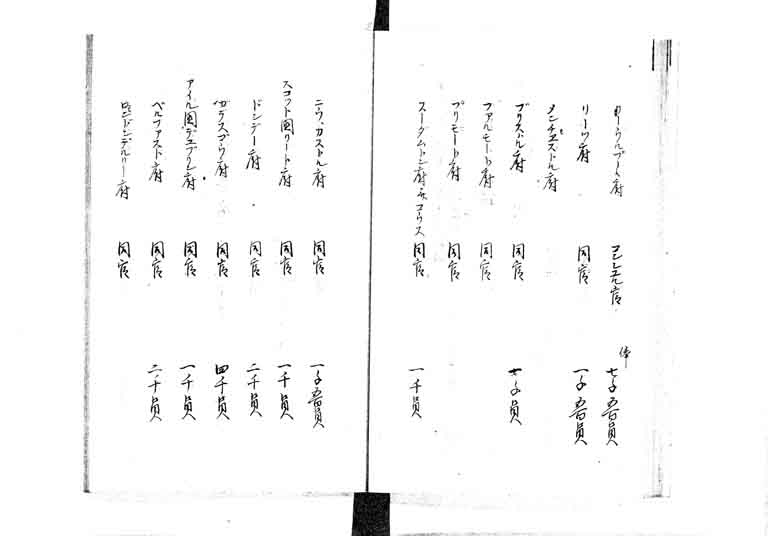 リーウルプール府 コンシュル官 俸 七千五百員
リーツ府 同官 一千五百員
メンチェストル府
ブリストル府 同官 七千員
ファルモート府 同官
プリモート府 同官
スーダムトン府 コウス 同官 一千員
ニウカストル府 同官 一千五百員
スコット國リート府 同官 一千員
ドンデー府 同官 二千員
ガラスゴウ府 同官 四千員
アイル國デュブリン府 同官 一千員
ベルファスト府 同官 二千員
ロンドンデルリー府 同官